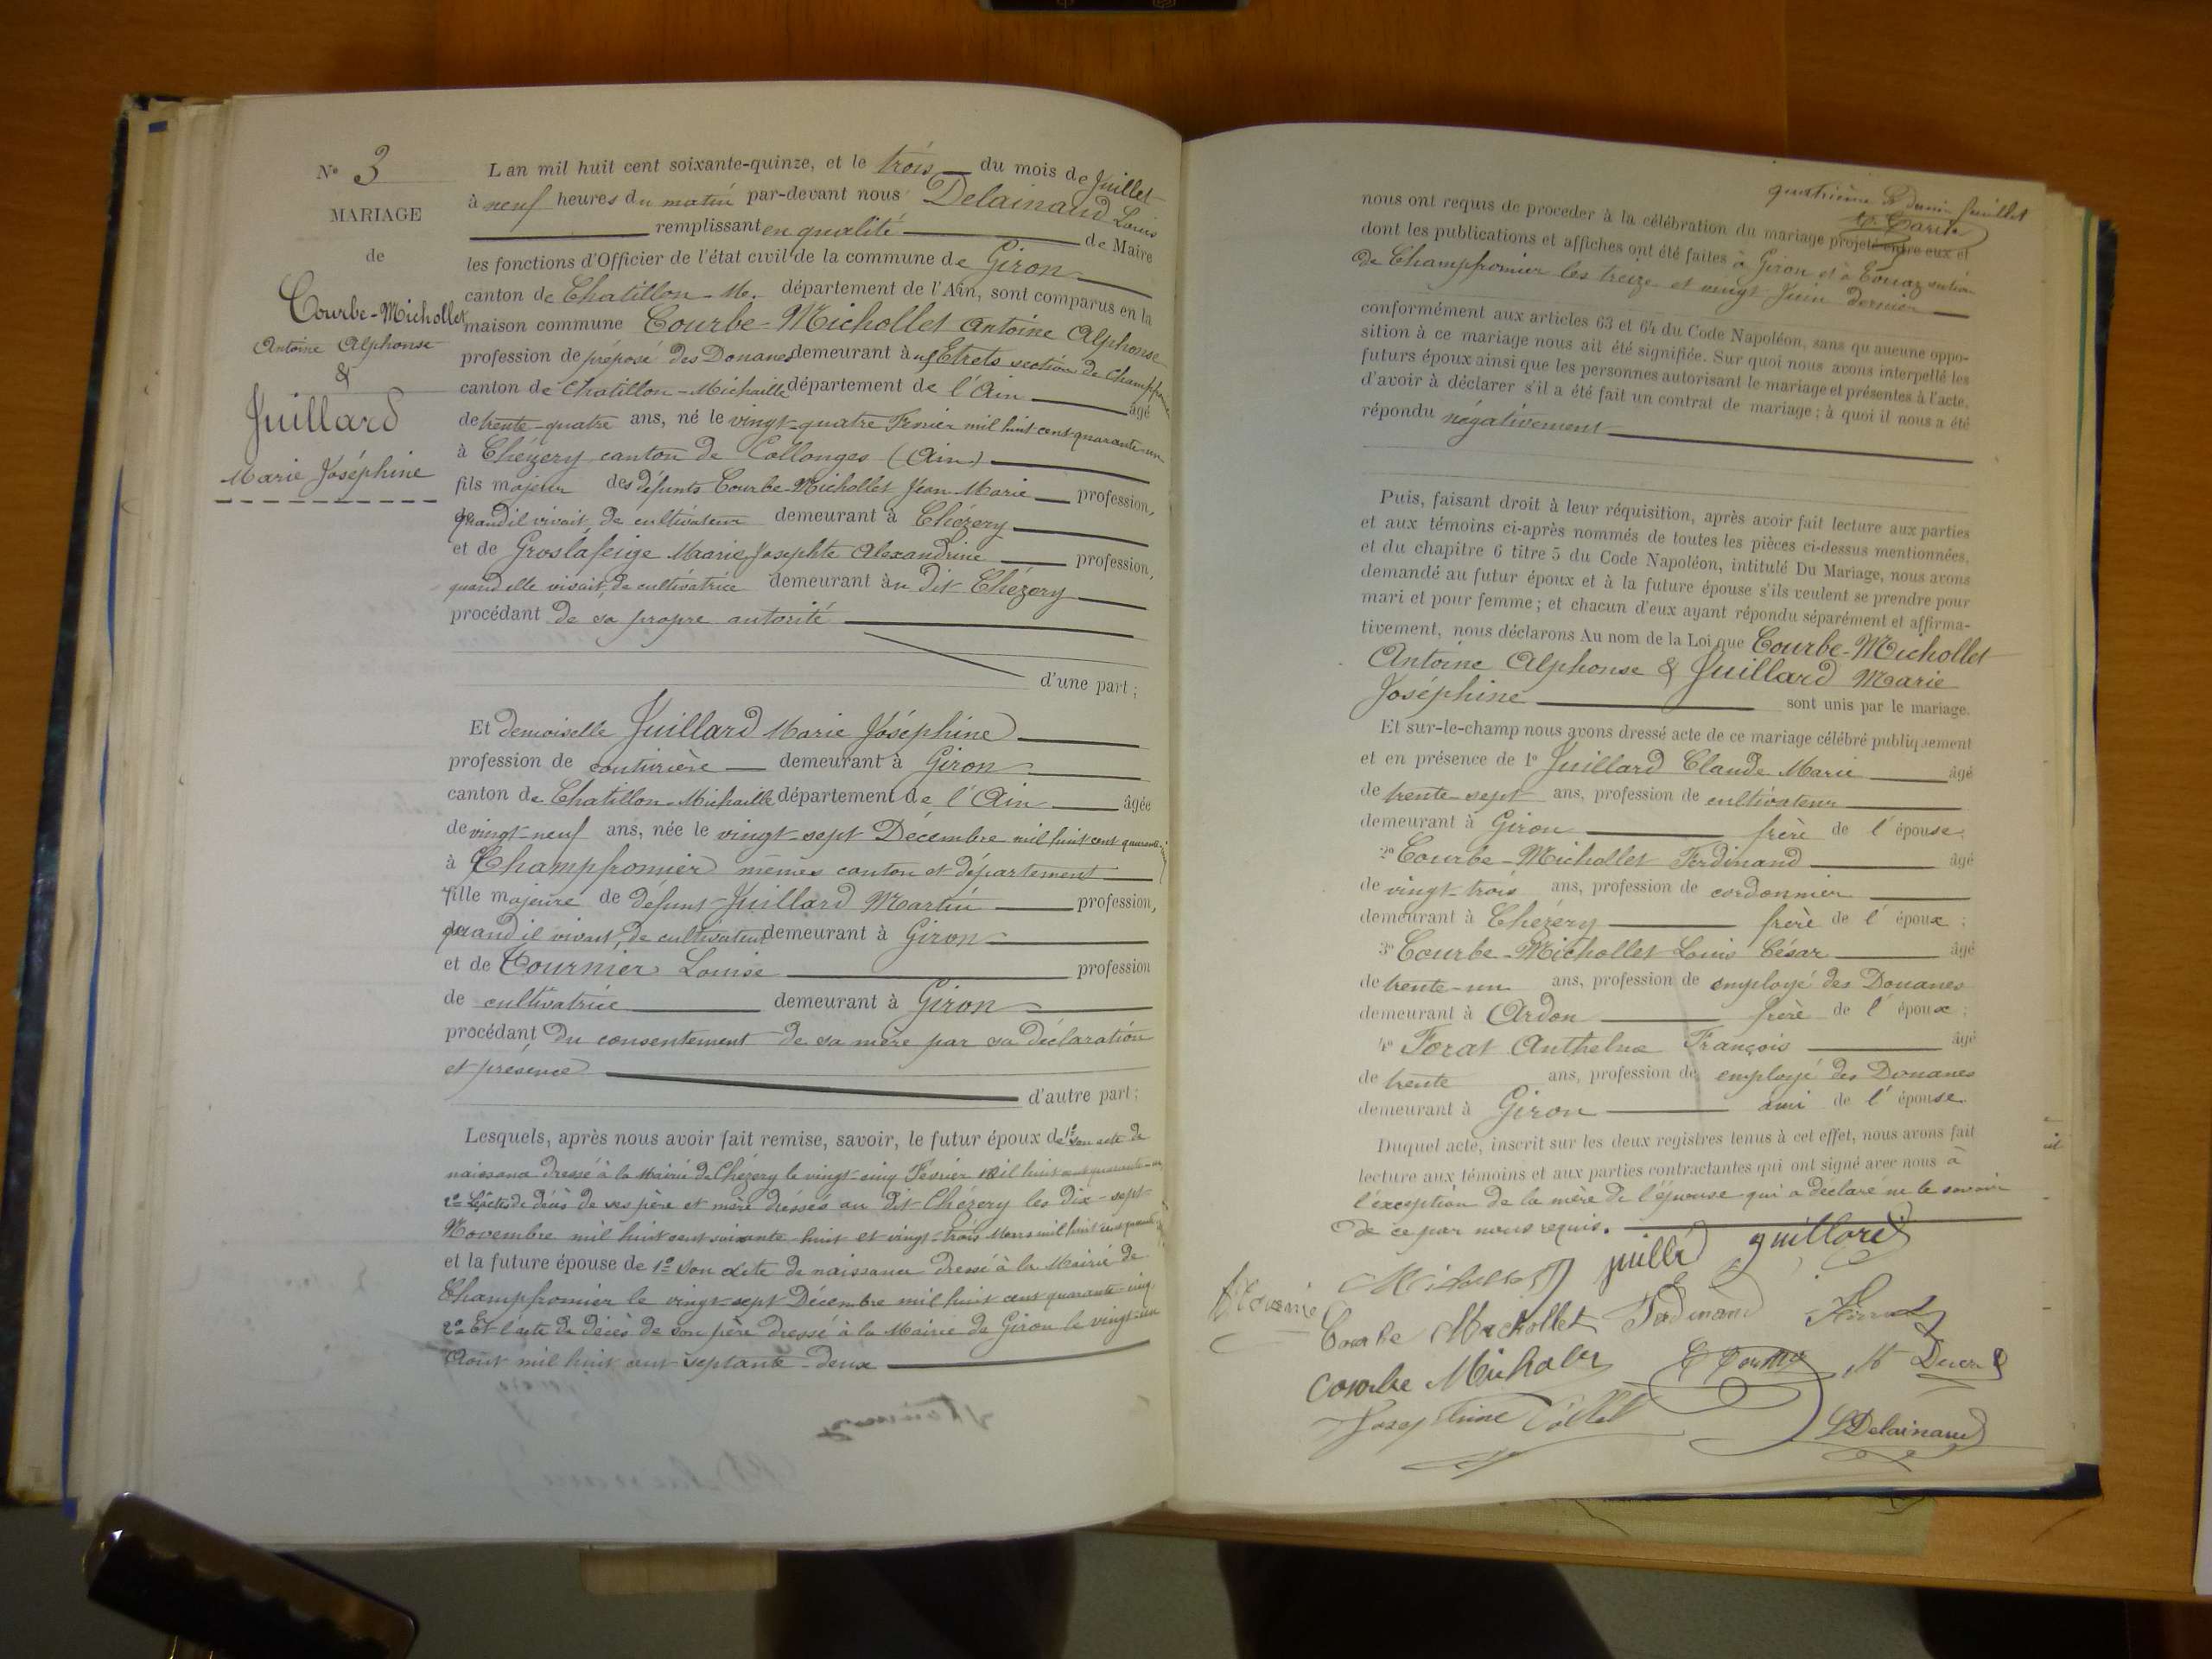 N° 3
MARIAGE
de
Courbe-Michollet
Antoine Alphonse
&
Juillard
Marie Joséphine
L'an mil huit cent soixante-quinze, et le trois du mois de Juillet
à neuf heures du matin par-devant nous Delainaud Louis
remplissant en qualité de Maire
les fonctions d'Officier de l'état civil de la commune de Giron
canton de Chatillon-M. département de l'Ain, sont comparus en la
maison commune Courbe-Michollet Antoine Alphonse
profession de préposé des Douanes demeurant à section de Champfromier
canton de Chatillon-Michaille département de l'Ain âgé
de trente-quatre ans, né le vingt-quatre Février mil huit cent quarante-un
à Chézery canton de Collonges (Ain)
fils majeur des défunts Courbe-Michollet Jean-Marie profession,
quand il vivait, de cultivateur demeurant à Chézery
et de Groslafeige Marie Josephte Alexandrine profession,
quand elle vivait, de cultivatrice demeurant au dit Chézery
procédant de sa propre autorité
d'une part ;
Et demoiselle Juillard Marie Joséphine
profession de couturière demeurant à Giron
canton de Chatillon-Michaille département de l'Ain âgée
de vingt-neuf ans, née le vingt-sept Décembre mil huit cent quarante-
à Champfromier mêmes canton et département
fille majeure de défunt Juillard Martin profession,
quand il vivait, de cultivateur demeurant à Giron
et de Tournier Louise profession
de cultivatrice demeurant à Giron
procédant du consentement de sa mère par sa déclaration
et présence
d'autre part ;
Lesquels, après nous avoir fait remise, savoir, le futur époux de 1° son acte de
naissance dressé à la Mairie de Chézery le vingt-cinq Février mil huit cent quarante-un
2° de décès de ses père et mère dressés au dit Chézery les dix-sept
Novembre mil huit cent soixante-huit et vingt-trois Mars mil huit cent
et la future épouse de 1° son acte de naissance dressé à la Mairie de
Champfromier le vingt-sept Décembre mil huit cent quarante-cinq
2° Et l'acte de décès de son père dressé à la Mairie de Giron le vingt-un
Aout mil huit cent septante-deux
quatrième Juillet
nous ont requis de proceder à la célébration du mariage projeté entre eux et
dont les publications et affiches ont été faites à Giron et à section
de Champfromier les treize et vingt Juin dernier
conformément aux articles 63 et 64 du Code Napoléon, sans qu'aucune oppo-
sition à ce mariage nous ait été signifiée. Sur quoi nous avons interpellé les
futurs époux ainsi que les personnes autorisant le mariage et présentes à l'acte,
d'avoir à déclarer s'il a été fait un contrat de mariage ; à quoi il nous a été
répondu négativement
Puis, faisant droit à leur réquisition, après avoir fait lecture aux parties
et aux témoins ci-après nommés de toutes les pièces ci-dessus mentionnées,
et du chapitre 6 titre 5 du Code Napoléon, intitulé Du Mariage, nous avons
demandé au futur époux et à la future épouse s'ils veulent se prendre pour
mari et pour femme ; et chacun d'eux ayant répondu séparément et affirma-
tivement, nous déclarons Au nom de la Loi que Courbe-Michollet
Antoine Alphonse & Juillard Marie
Joséphine sont unis par le mariage.
Et sur-le-champ nous avons dressé acte de ce mariage célébré publiquement
et en présence de 1° Juillard Claude Marie âgé
de trente-sept ans, profession de cultivateur
demeurant à Giron frère de l'épouse ;
2° Courbe-Michollet Ferdinand âgé
de vingt-trois ans, profession de cordonnier
demeurant à Chézery frère de l'époux ;
3° Courbe-Michollet Louis César âgé
de trente-un ans, profession de employé des Douanes
demeurant à Ardon frère de l'époux ;
4° Forat Anthelme François âgé
de trente ans, profession de employé des Douanes
demeurant à Giron ami de l'épouse.
Duquel acte, inscrit sur les deux registres tenus à cet effet, nous avons fait
lecture aux témoins et aux parties contractantes qui ont signé avec nous à
l'exception de la mère de l'épouse qui a déclaré ne le savoir
de ce par nous requis.
Courbe Michollet Ferdinand
Courbe
Josephine
LDelainaud